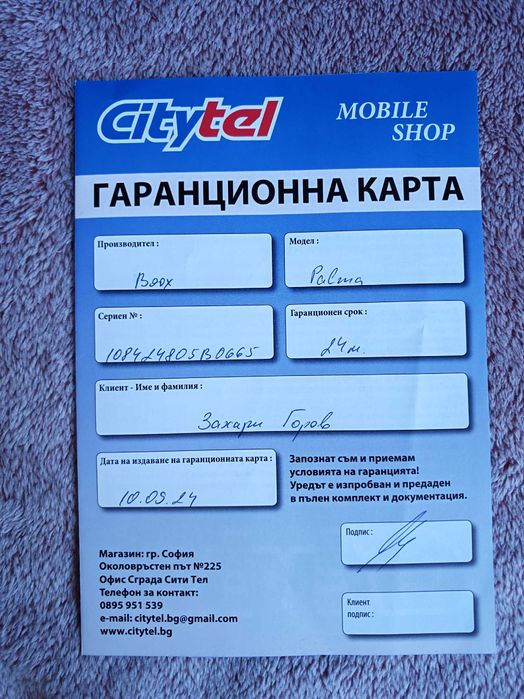 Citytel
MOBILE
SHOP
ГАРАНЦИОННА КАРТА
Производител :
Boox
Модел :
Palma
Сериен № :
108424805B0665
Гаранционен срок :
24м.
Клиент - Име и фамилия :
Захари Горов
Дата на издаване на гаранционната карта :
10.09.24
Запознат съм и приемам
условията на гаранцията!
Уредът е изпробван и предаден
в пълен комплект и документация.
Подпис :
Магазин: гр. София
Околовръстен път №225
Офис Сграда Сити Тел
Телефон за контакт:
0895 951 539
e-mail: citytel.bg@gmail.com
www.citytel.bg
Клиент
подпис :